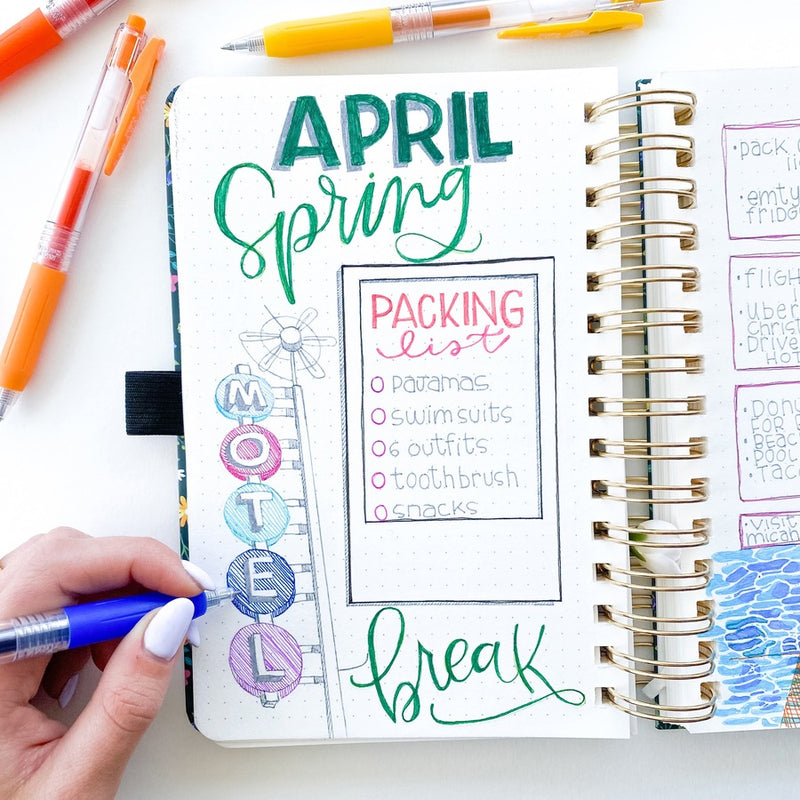 APRIL
Spring
PACKING
list
pajamas
swimsuits
6 outfits
toothbrush
snacks
MOTEL
break
• pack
• emty
FRIDG
• FLIGH
• Uber
Christ
• Drive
HOT
• DONU
FOR B
• BEAC
• POOL
• TAC
• VISIT
micah